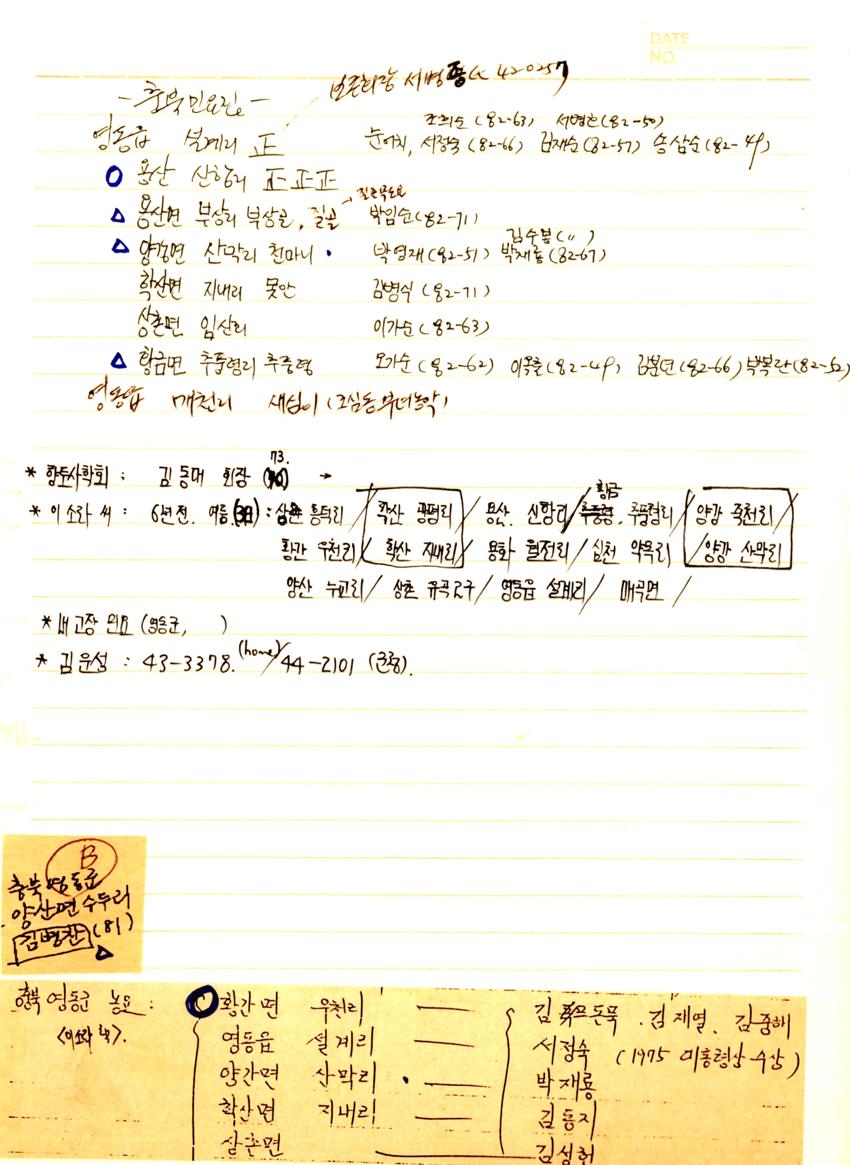 DATE
NO
보존회장 서병종 42-0257
-충북민요집-
조희순 (82-63) 서병찬 (82-50)
영동읍 설계리 正 논어리, 서정숙 (82-66) 김재순 (82-57) 송삼순 (82-49)
용산 신항리 正正正
용산면 부상리 부상골, 질골 박임순 (82-71)
김수봉 (〃)
양강면 산막리 천마니 박영재 (82-51) 박재룡 (82-67)
학산면 지내리 못안 김병식 (82-71)
상촌면 임산리 이가순 (82-63)
황금면 추풍령리 추풍령 오가순 (82-62) 이옥출 (82-49) 김분연 (82-66) 박복란 (82-52)
영동읍 매천리 새심이 (조심동부녀농악)
73.
* 향토사학회 : 김동대 회장 →
황금
* 이소라 씨 : 6년전. 여름 : 상촌 흥덕리 / 학산 광평리 / 용산. 신항리 / 추풍령. 추풍령리 / 양강 죽촌리 /
황간 우천리 / 학산 지내리 / 용화 월전리 / 심천 약목리 / 양강 산막리
양산 누교리 / 상촌 유곡2구 / 영동읍 설계리 / 매곡면 /
* 내고장 민요 (영동군, )
* 김운성 : 43-3378. (home) / 44-2101 (군청).
B
충북 영동군
양산면 수두리
김병찬 (81)
충북 영동군 농요 : 황간면 우천리 김 돈묵. 김재열. 김중해
<이소라 책>. 영동읍 설계리 서정숙 (1975 대통령상 수상)
양간면 산막리 박재룡
학산면 지내리 김동지
상촌면 김성헌